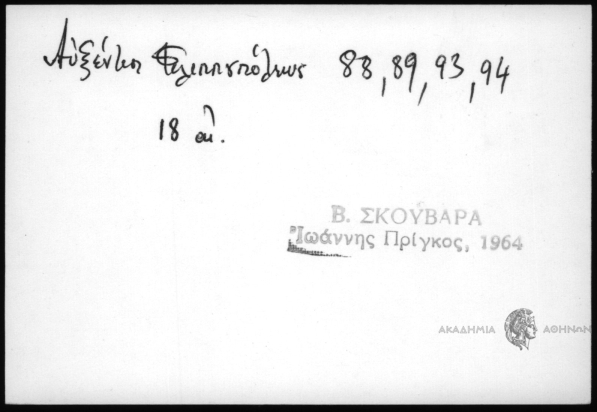 Αὐξέντιος Φιλιππουπόλεως 88, 89, 93, 94
18 αἰ.
Β. ΣΚΟΥΒΑΡΑ
Ἰωάννης Πρίγκος, 1964
ΑΚΑΔΗΜΙΑ ΑΘΗΝΩΝ